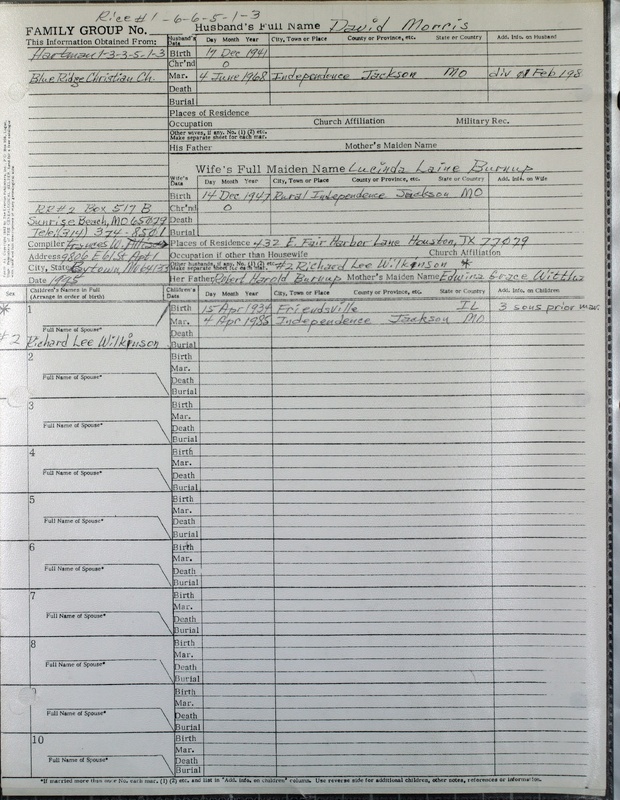 Rice #1-6-6-5-1-3
FAMILY GROUP No.
Husband's Full Name David Morris
This Information Obtained From:
Husband's Data Day Month Year City, Town or Place County or Province, etc. State or Country Add. Info. on Husband
Hartman 1-3-3-5-1-3 Birth 17 Dec 1941
Chr'nd 0
Blue Ridge Christian Ch. Mar. 4 June 1968 Independence Jackson MO div Feb 198
Death
Burial
Places of Residence
Occupation Church Affiliation Military Rec.
Other wives, if any. No. (1) (2) etc. Make separate sheet for each mar.
His Father Mother's Maiden Name
Wife's Full Maiden Name Lucinda Laine Burnup
Wife's Data Day Month Year City, Town or Place County or Province, etc. State or Country Add. Info. on Wife
Birth 14 Dec 1947 Rural Independence Jackson MO
RR#2 Box 517 B Chr'nd 0
Sunrise Beach, MO 65079 Death
Tele: (314) 374-8501 Burial
Compiler Frances W. Places of Residence 432 E. Fair Harbor Lane Houston, TX 77079
Address 9806 E 61 St Apt 1 Occupation if other than Housewife Church Affiliation
City, State Raytown, Mo 64133 Other husbands, if any. No. (1) (2) etc. Make separate sheet for each mar. #2 Richard Lee Wilkinson *
Date 1995 Her Father Robert Harold Burnup Mother's Maiden Name Edwina Grace
Sex Children's Names in Full (Arrange in order of birth) Children's Data Day Month Year City, Town or Place County or Province, etc. State or Country Add. Info. on Children
* 1 Birth 15 Apr 1934 Friendsville IL 3 sons prior mar.
Mar. 4 Apr 1985 Independence Jackson MO
Full Name of Spouse* Death
#2 Richard Lee Wilkinson Burial
2 Birth
Mar.
Full Name of Spouse* Death
Burial
3 Birth
Mar.
Full Name of Spouse* Death
Burial
4 Birth
Mar.
Full Name of Spouse* Death
Burial
5 Birth
Mar.
Full Name of Spouse* Death
Burial
6 Birth
Mar.
Full Name of Spouse* Death
Burial
7 Birth
Mar.
Full Name of Spouse* Death
Burial
8 Birth
Mar.
Full Name of Spouse* Death
Burial
Birth
Mar.
Full Name of Spouse* Death
Burial
10 Birth
Mar.
Full Name of Spouse* Death
Burial
*If married more than once No. each mar. (1) (2) etc. and list in "Add. info. on children" column. Use reverse side for additional children, other notes, references or information.